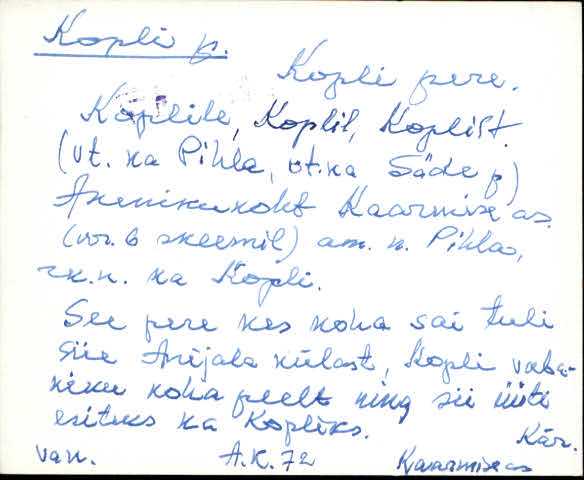 Kopli p.
Kopli pere.
Koplile, Koplil, Koplist.
(vt. ka Pihla, vt. ka Säde p)
Asenikukoht Kaarmise as.
(nr. 6 skeemil) am. n. Pihla,
rk. n. ka Kopli.
See pere kes koha sai tuli
siie Anijala külast, Kopli vaba-
niku koha pealt ning sii üiti
esiteks ka Kopliks.
Kär.
van. A.K. 72 Kaarmise as